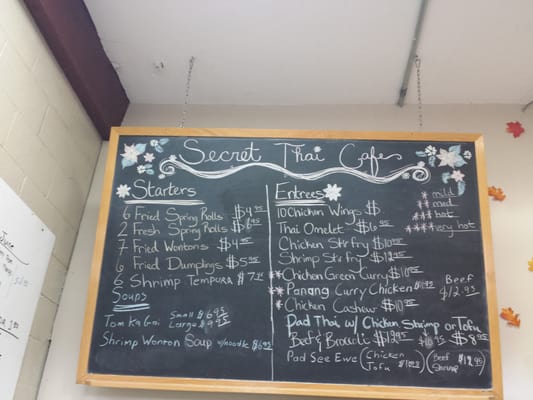 Secret Thai Cafe
Starters
6 Fried Spring Rolls $4.95
2 Fresh Spring Rolls $6.95
7 Fried Wontons $4.95
6 Fried Dumplings $5.95
6 Shrimp Tempura $7.95
Soups
Tom Ka Gai Small $6.95
Large $9.95
Shrimp Wonton Soup w/noodle $6.95
Entrees
10 Chicken Wings $
Thai Omelet $6.95
Chicken Stir fry $10.95
Shrimp Stir fry $12.95
* Chicken Green Curry $10.95
** Panang Curry Chicken Beef
$12.95
* Chicken Cashew $10.95
Pad Thai w/ Chicken Shrimp or Tofu
Beef & Broccoli $12.95 $8.95
Pad See Ewe (Chicken
Tofu) (Beef
Shrimp $12.95)
* mild
** med
*** hot
**** very hot